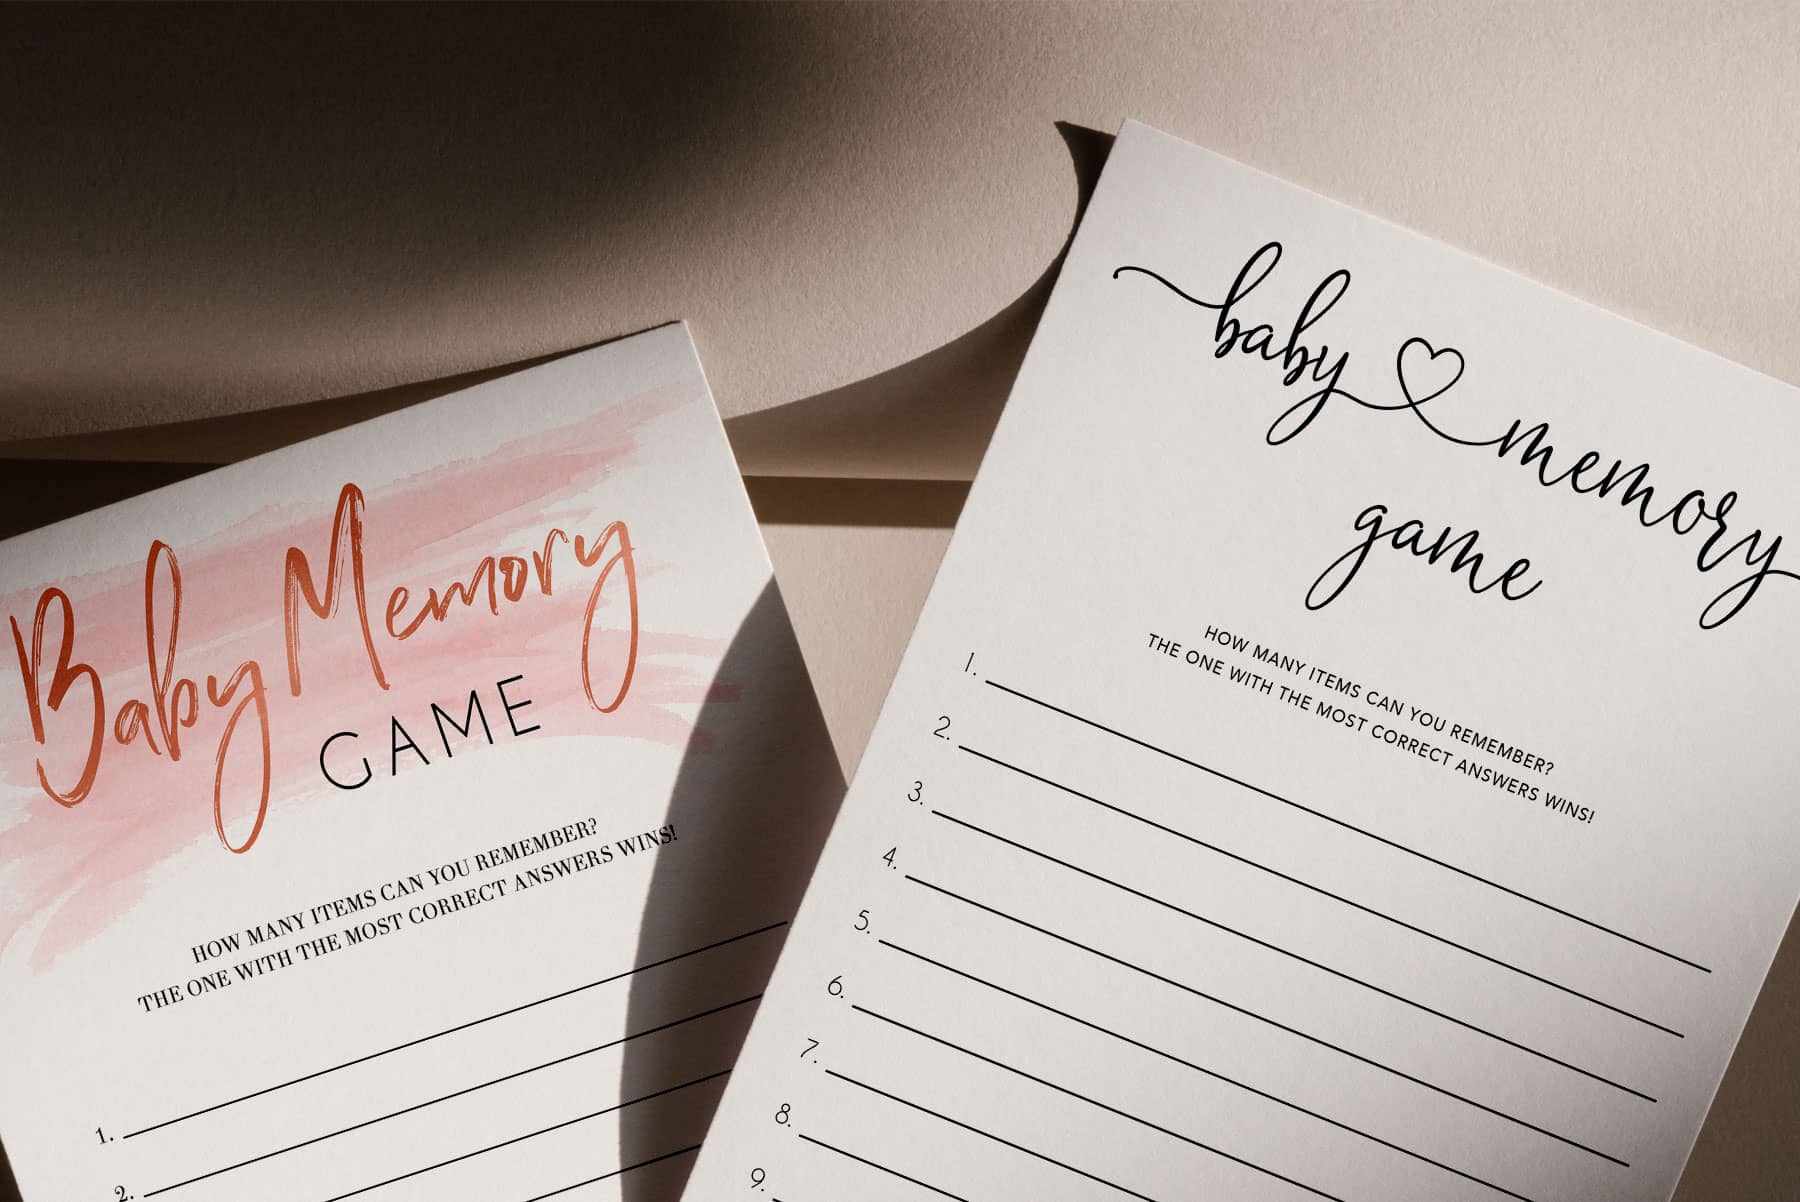 Baby Memory
GAME
HOW MANY ITEMS CAN YOU REMEMBER?
THE ONE WITH THE MOST CORRECT ANSWERS WINS!
1.
2.
baby memory
game
HOW MANY ITEMS CAN YOU REMEMBER?
THE ONE WITH THE MOST CORRECT ANSWERS WINS!
1.
2.
3.
4.
5.
6.
7.
8.
9.